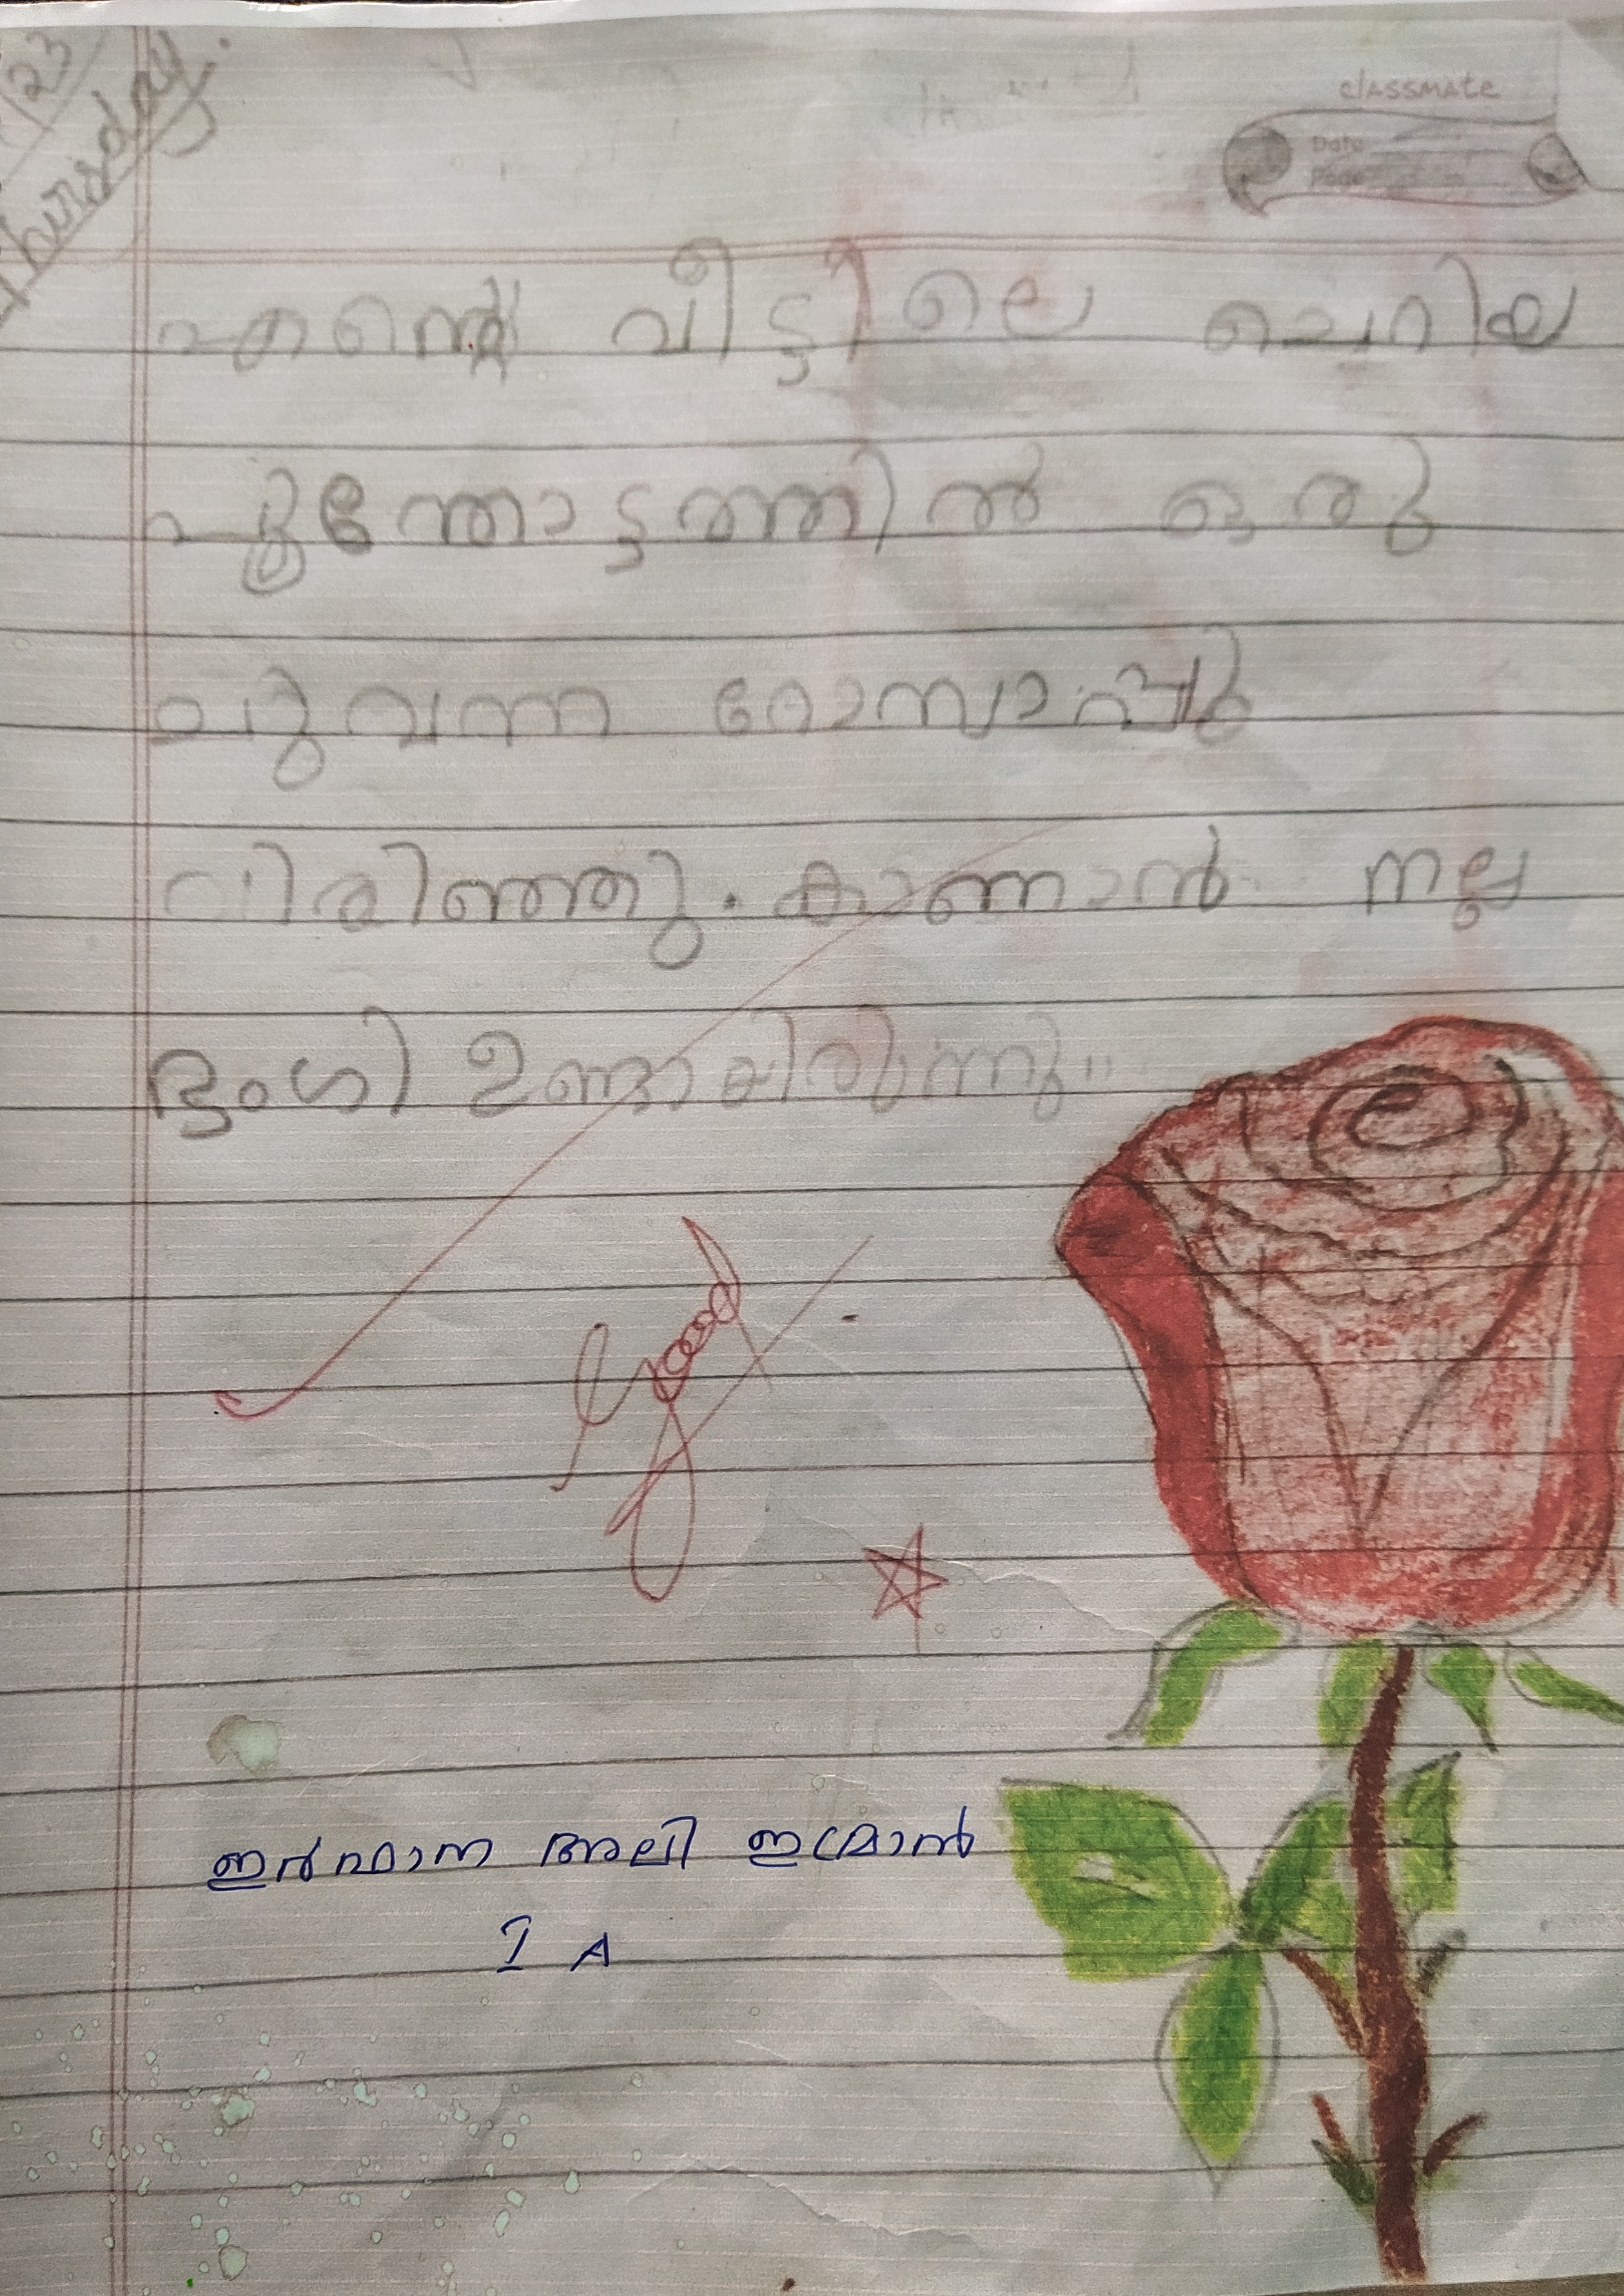 /23
Thursday.
classmate
Date
Page
എന്റെ വീട്ടിലെ ചെറിയ
പൂന്തോട്ടത്തിൽ ഒരു
ചുവന്ന റോസാപ്പൂ
വിരിഞ്ഞു. കാണാൻ നല്ല
ഭംഗി ഉണ്ടായിരുന്നു"
Good
ഇർഫാന അലി ഇമ്രാൻ
I A